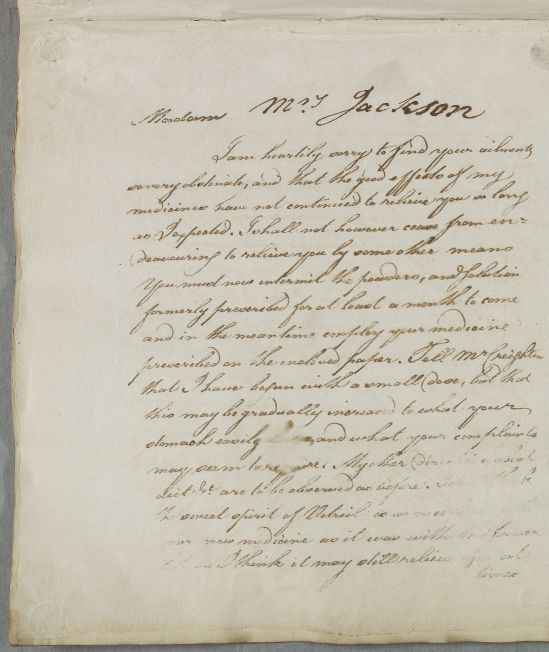 Mrs Jackson
Madam
I am heartily sorry to find your ailments
so very obstinate, and that the good effects of my
medicines have not continued to relieve you so long
as I expected. I shall not however cease from en-
deavouring to relieve you by some other means
You must now intermit the powders, and solution
formerly prescribed for at least a month to come
and in the meantime employ your medicine
prescribed on the inclosed paper. Tell Mr Creighton
that I have begun with a small dose, but that
this may be gradually increased to what your
stomach easily and what your complaints
may seem to require. My other directions about
diet &c are to be observed as before.
the sweet spirit of Vitriol is so
new medicine as it was with the former
I think it may still relieve you at
times